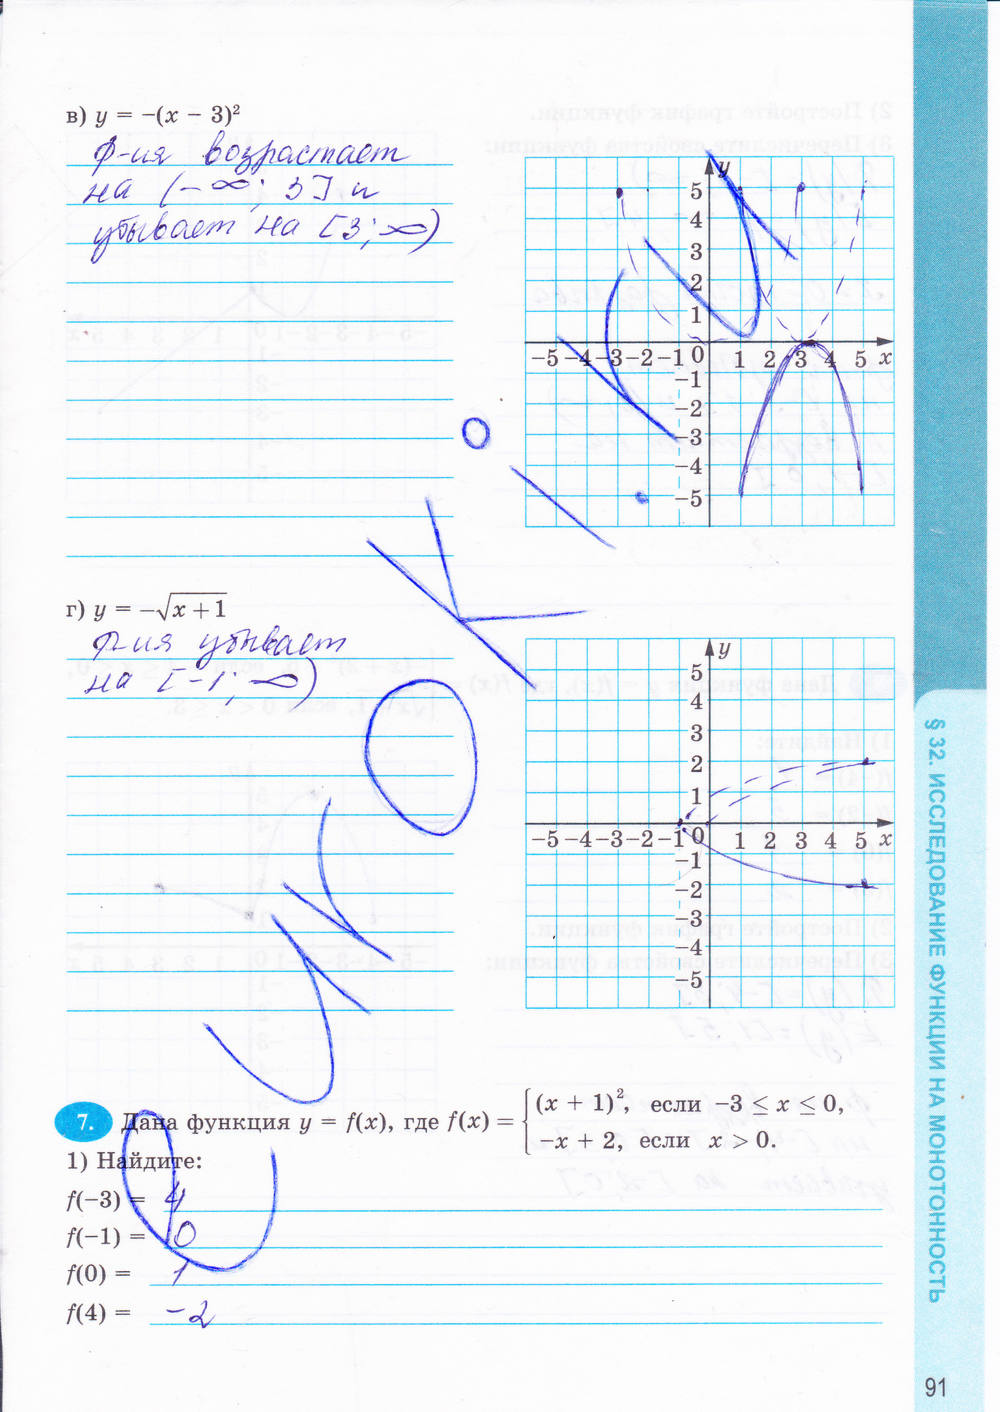 в) y = –(x – 3)²
Ф-ия возрастает
на (–∞; 3] и
убывает на [3; ∞)
y
5
4
3
2
1
–5 –4 –3 –2 –1 0 1 2 3 4 5 x
–1
–2
–3
–4
–5
г) y = –√(x + 1)
Ф-ия убывает
на [–1; ∞)
y
5
4
3
2
1
–5 –4 –3 –2 –1 0 1 2 3 4 5 x
–1
–2
–3
–4
–5
§ 32. ИССЛЕДОВАНИЕ ФУНКЦИИ НА МОНОТОННОСТЬ
7. Дана функция y = f(x), где f(x) = { (x + 1)², если –3 ≤ x ≤ 0,
–x + 2, если x > 0.
1) Найдите:
f(–3) = 4
f(–1) = 0
f(0) = 1
f(4) = –2
91